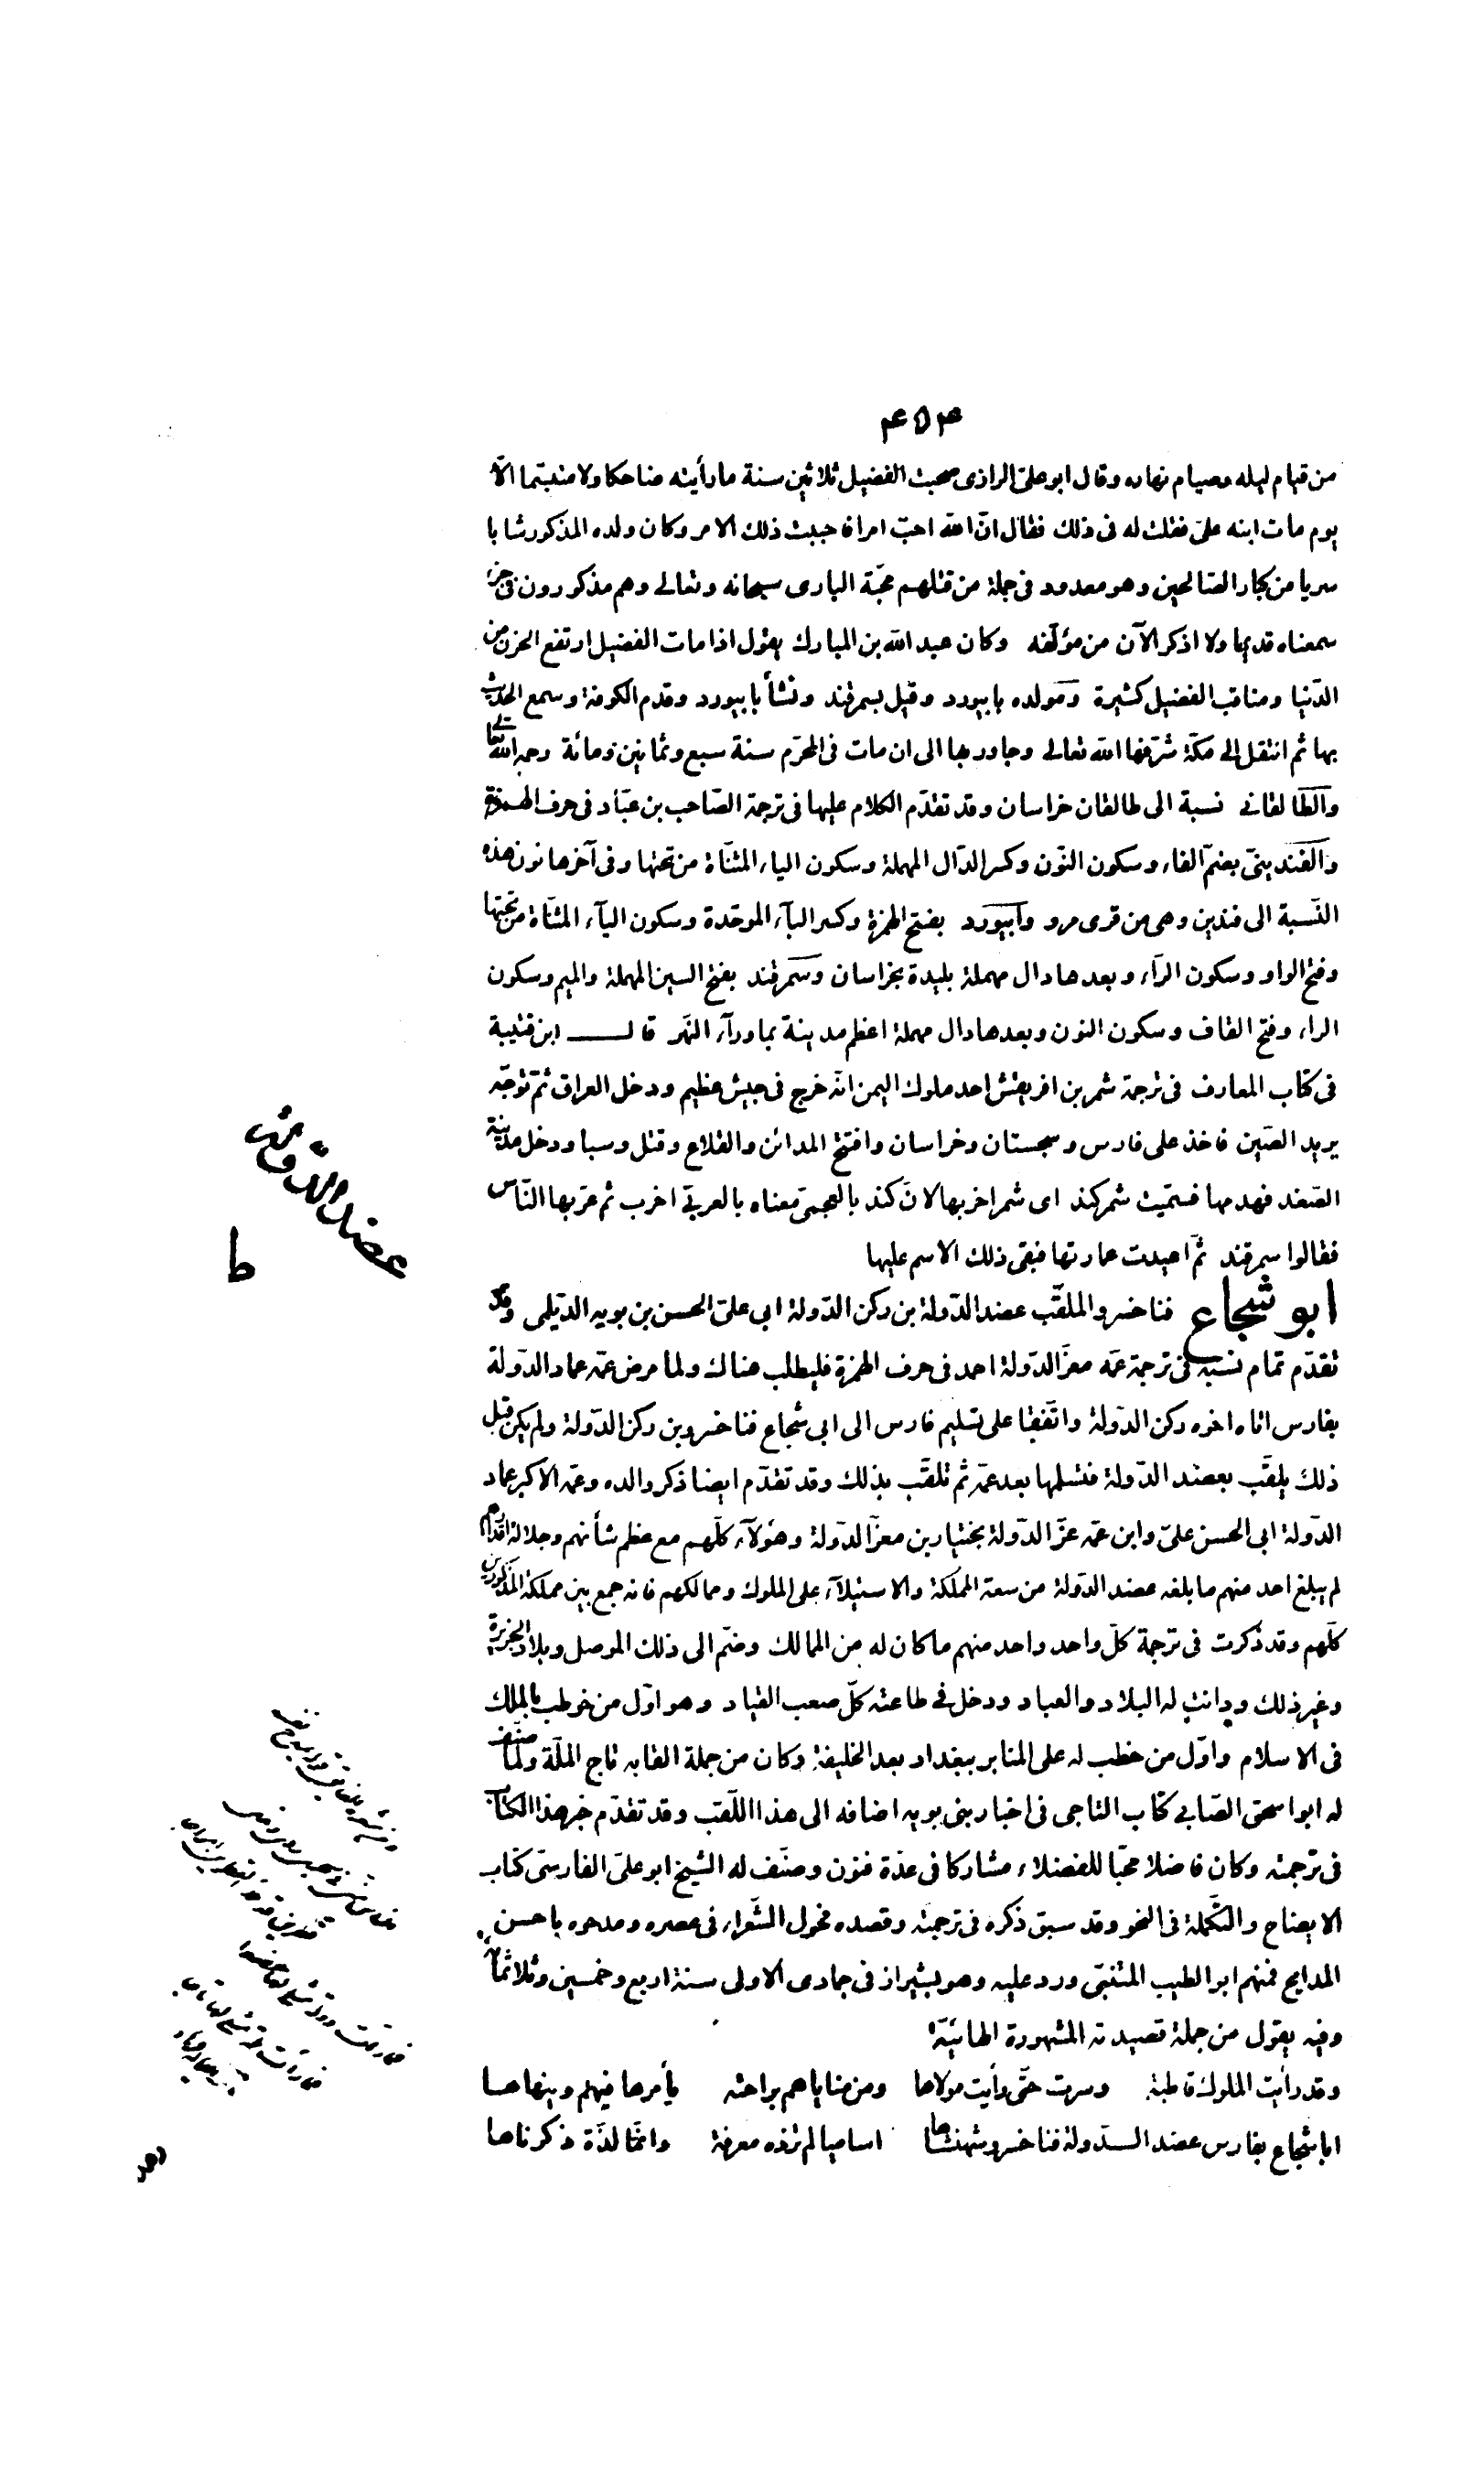 ۴۵۳
من قيام ليله وصيام نهاره وقال ابو على الرازى صحبت الفضيل ثلاثين سنة ما رأيته ضاحكا ولا متبسّما الّا
يوم مات ابنه علىّ فقلت له فى ذلك فقال انّ الله احبّ امرا فاحببت ذلك الامر وكان ولده المذكور شابا
سريا من كبار الصّالحين وهو معدود فى جملة من قتلهم محبّة البارى سبحانه وتعالى وهم مذكورون فى جزء
سمعناه قديما ولا اذكر الآن من مؤلّفه وكان عبد الله بن المبارك يقول اذا مات الفضيل ارتفع الحزن من
الدّنيا ومناقب الفضيل كثيرة ومولده بابيورد وقيل بسمرقند ونشأ بابيورد وقدم الكوفة وسمع الحديث
بها ثم انتقل الى مكّة شرّفها الله تعالى وجاور بها الى ان مات فى المحرّم سنة سبع وثمانين ومائة رحمه الله تعالى
والطّالقانى نسبة الى طالقان خراسان وقد تقدّم الكلام عليها فى ترجمة الصّاحب بن عبّاد فى حرف الهمزة
والفندينىّ بضمّ الفاء وسكون النّون وكسر الدّال المهملة وسكون الياء المثنّاة من تحتها وفى آخرها نون هذه
النّسبة الى فندين وهى من قرى مرو وابيورد بفتح الهمزة وكسر البآء الموحّدة وسكون اليآء المثنّاة من تحتها
وفتح الواو وسكون الرّاء وبعدها دال مهملة بليدة بخراسان وسمرقند بفتح السين المهملة والميم وسكون
الراء وفتح القاف وسكون النون وبعدها دال مهملة اعظم مدينة بماورآء النّهر قال ابن قتيبة
فى كتاب المعارف فى ترجمة شمر بن افريقش احد ملوك اليمن انّه خرج فى جيش عظيم ودخل العراق ثمّ توجّه
يريد الصّين فاخذ على فارس وسجستان وخراسان وافتتح المدائن والقلاع وقتل وسبا ودخل مدينة
الصّغد فهدمها فسمّيت شمركند اى شمر اخربها لانّ كند بالعجمىّ معناه بالعربىّ اخرب ثم عرّبها النّاس
فقالوا سمرقند ثمّ اعيدت عمارتها فبقى ذلك الاسم عليها
ابو شجاع فناخسرو الملقّب عضد الدّولة بن ركن الدّولة ابى علىّ الحسن بن بويه الدّيلمى وقد
تقدّم تمام نسبه فى ترجمة عمّه معزّ الدّولة احمد فى حرف الهمزة فليطلب هناك ولما مرض عمّه عماد الدّولة
بفارس اتاه اخوه ركن الدّولة واتّفقا على تسليم فارس الى ابى شجاع فناخسرو بن ركن الدّولة ولم يكن قبل
ذلك يلقّب بعضد الدّولة فتسلمها بعد عمّه ثم تلقّب بذلك وقد تقدّم ايضا ذكر والده وعمّه الاكبر عماد
الدّولة ابى الحسن علىّ وابن عمّه عزّ الدّولة بختيار بن معزّ الدّولة وهؤلآء كلّهم مع عظم شأنهم وجلالة اقدارهم
لم يبلغ احد منهم ما بلغه عضد الدّولة من سعة المملكة والاستيلآء على الملوك وممالكهم فانه جمع بين مملكة المذكورين
كلّهم وقد ذكرت فى ترجمة كلّ واحد واحد منهم ما كان له من الممالك وضمّ الى ذلك الموصل وبلاد الجزيرة
وغير ذلك ودانت له البلاد والعباد ودخل فى طاعته كلّ صعب القياد وهو اوّل من خوطب بالملك
فى الاسلام واوّل من خطب له على المنابر ببغداد بعد الخليفة وكان من جملة القابه تاج الملّة ولمّا صنّف
له ابو اسحق الصّابى كتاب التاجى فى اخبار بنى بويه اضافه الى هذا اللّقب وقد تقدّم خبر هذا الكتاب
فى ترجمته وكان فاضلا محبّا للفضلاء مشاركا فى عدّة فنون وصنّف له الشيخ ابو علىّ الفارسىّ كتاب
الايضاح والتّكملة فى النحو وقد سبق ذكره فى ترجمته وقصده فحول الشّعراء فى عصره ومدحوه باحسن
المدايح فمنهم ابو الطيب المتنبّى ورد عليه وهو بشيراز فى جمادى الاولى سنة اربع وخمسين وثلاثمائة
وفيه يقول من جملة قصيدته المشهورة الهائيّة
وقد رأيت الملوك قاطبة وسرت حتّى رأيت مولاها ومن مناياهم براحته يأمرها فيهم وينهاها
ابا شجاع بفارس عضد الدّولة فناخسرو شهنشاها اساميا لم تزده معرفة وانمّا لذّة ذكرناها
عضد الدولة
ط